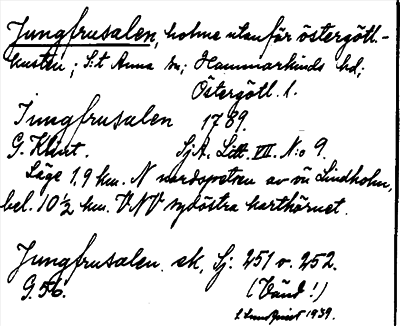 Jungfrusalen, holme utanför östergötl.-
kusten; S:t Anna sn; Hammarkinds hd;
Östergötl. l.
Jungfrusalen 1789.
G. Klint. SjA. Litt. VII. N:o 9.
Läge 1,9 km. N nordspetsen av ön Lindholm,
bel. 10½ km. VNV sydöstra karthörnet.
Jungfrusalen. ek. Sj. 251 o. 252.
G. 56. (Vänd!)
Lundqvist 1939.